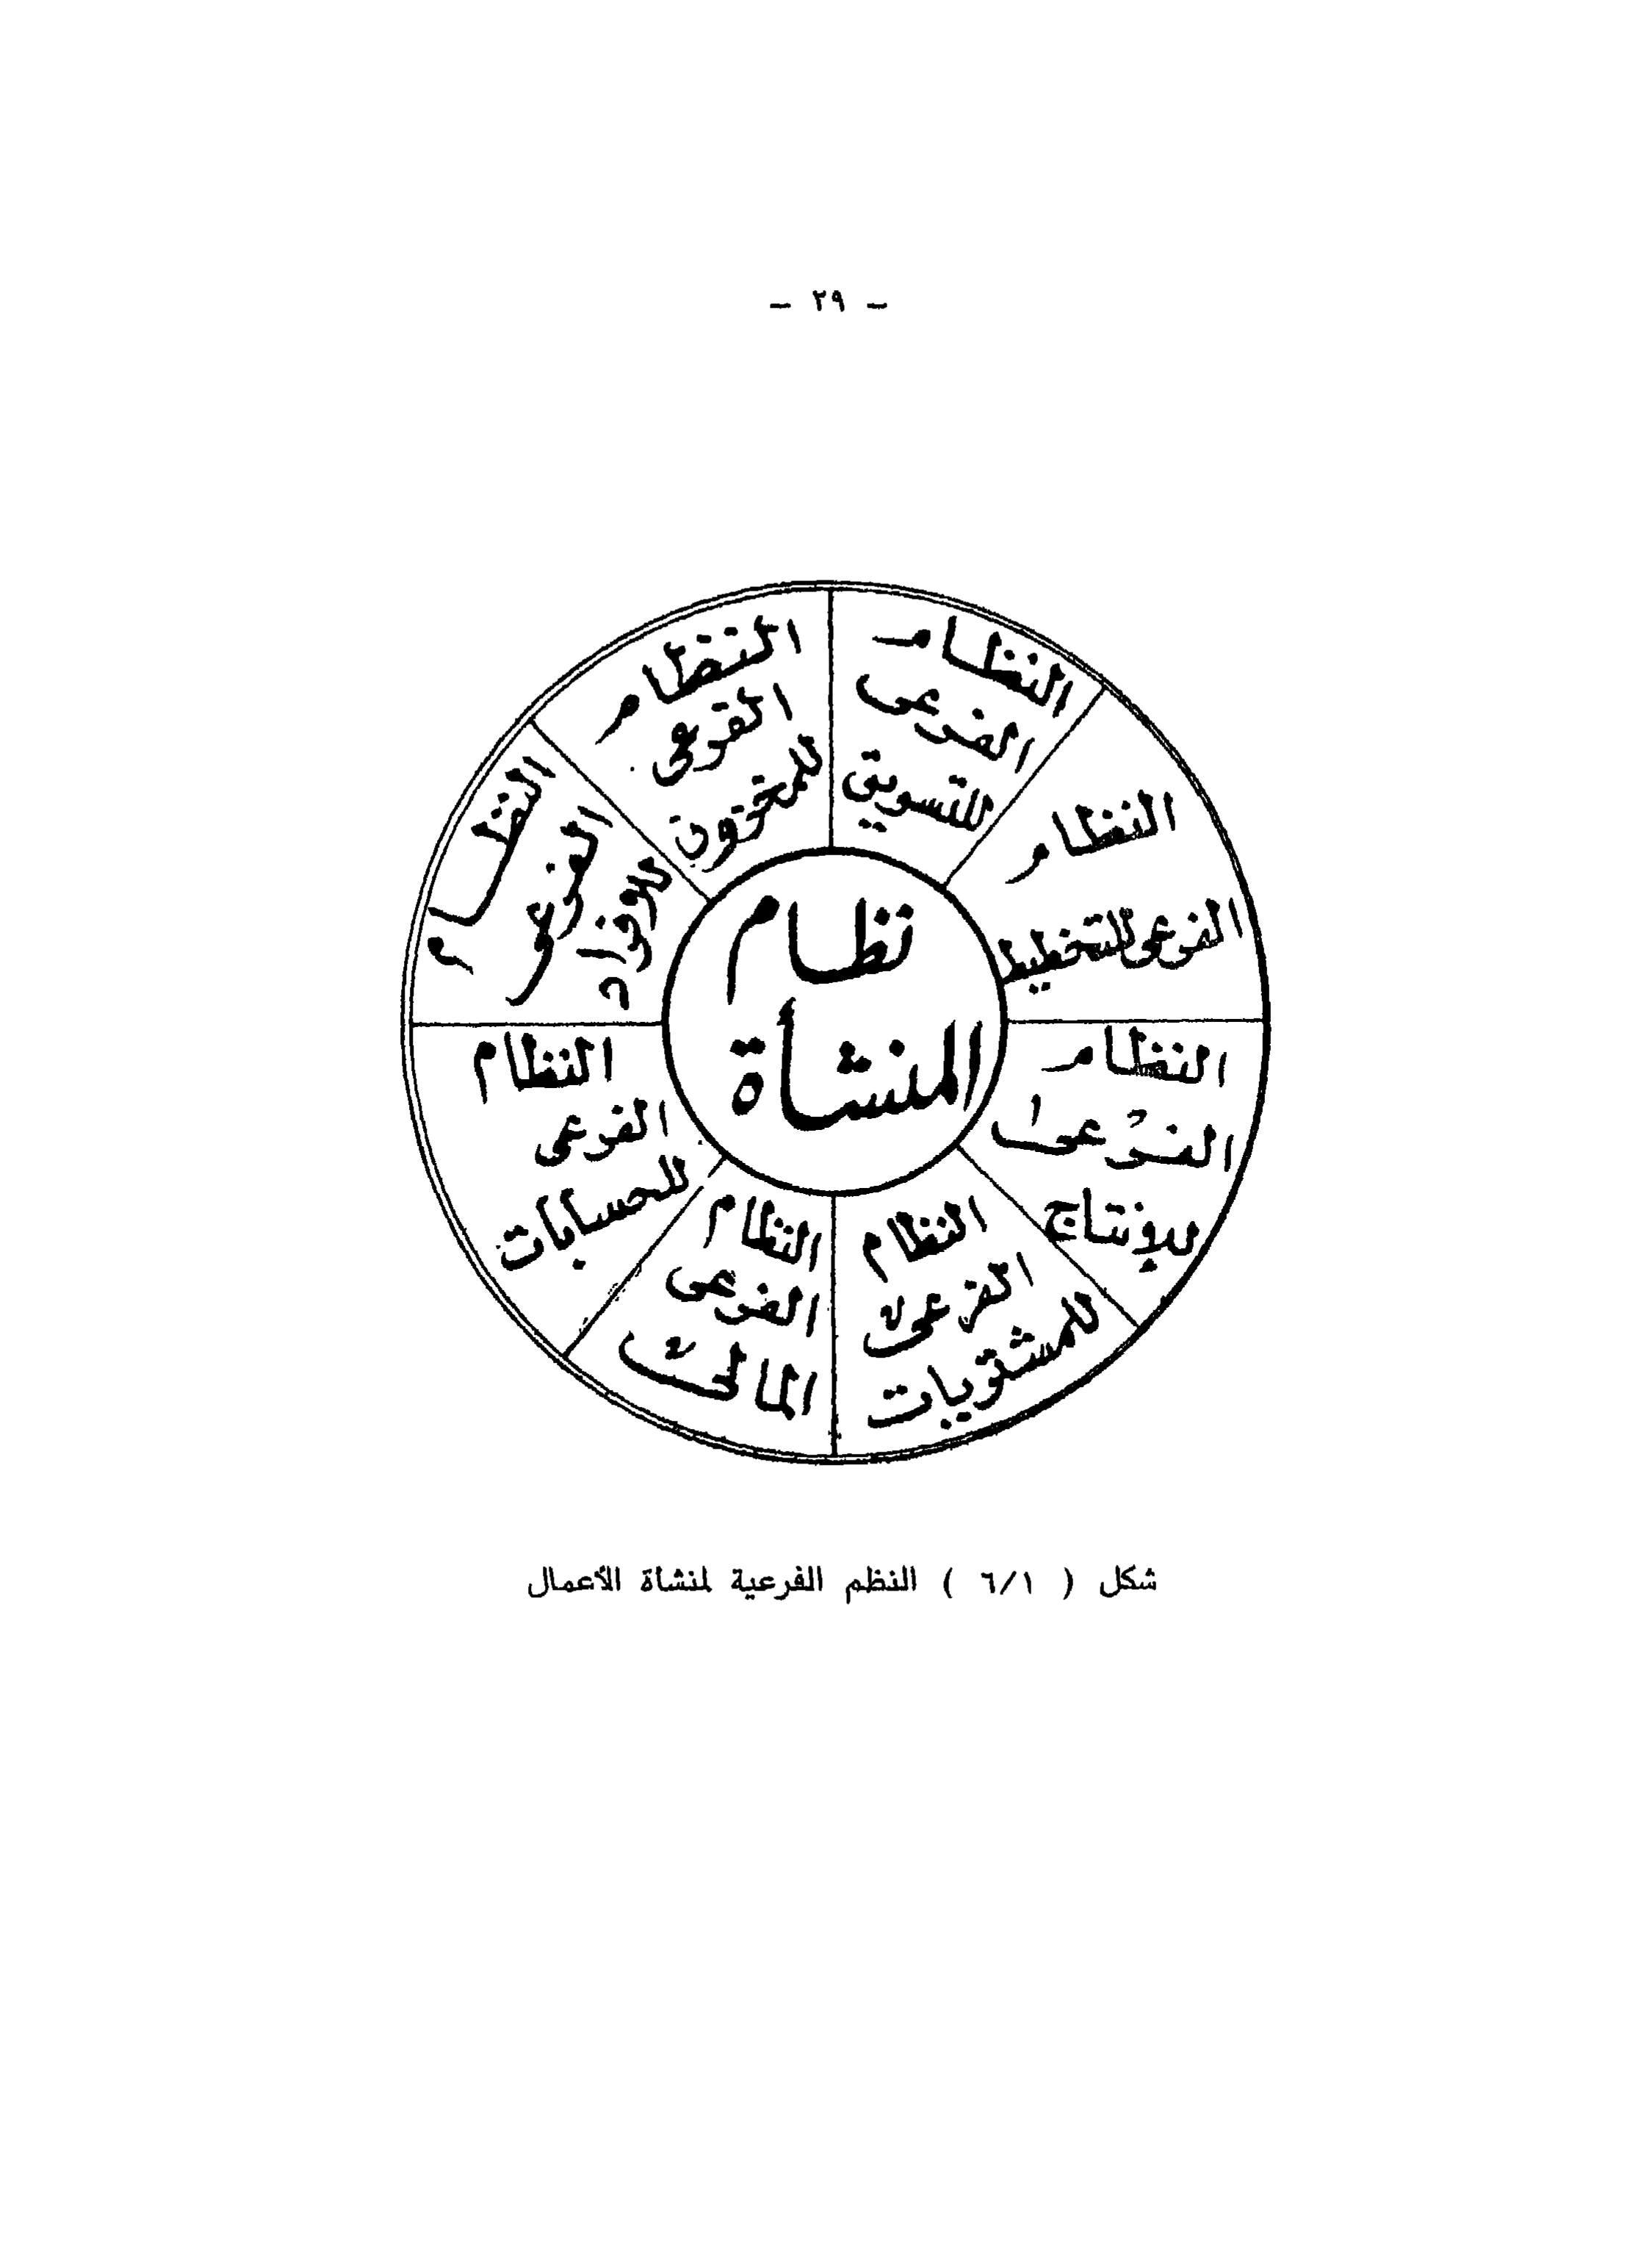 - ٢٩ -
النظام
الفرعى
للتسويق
النظام
الفرعى للتخطيط
النظام
الفرعى
للإنتاج
النظام
الفرعى
للمشتويات
النظام
الفرعى
المالى
النظام
الفرعى
للحسابات
النظـــام
الفرعى
للأفراد
النظام
الفرعى
للمخزون
نظام
المنشأة
شكل ( ٦/١ ) النظم الفرعية لمنشأة الأعمال